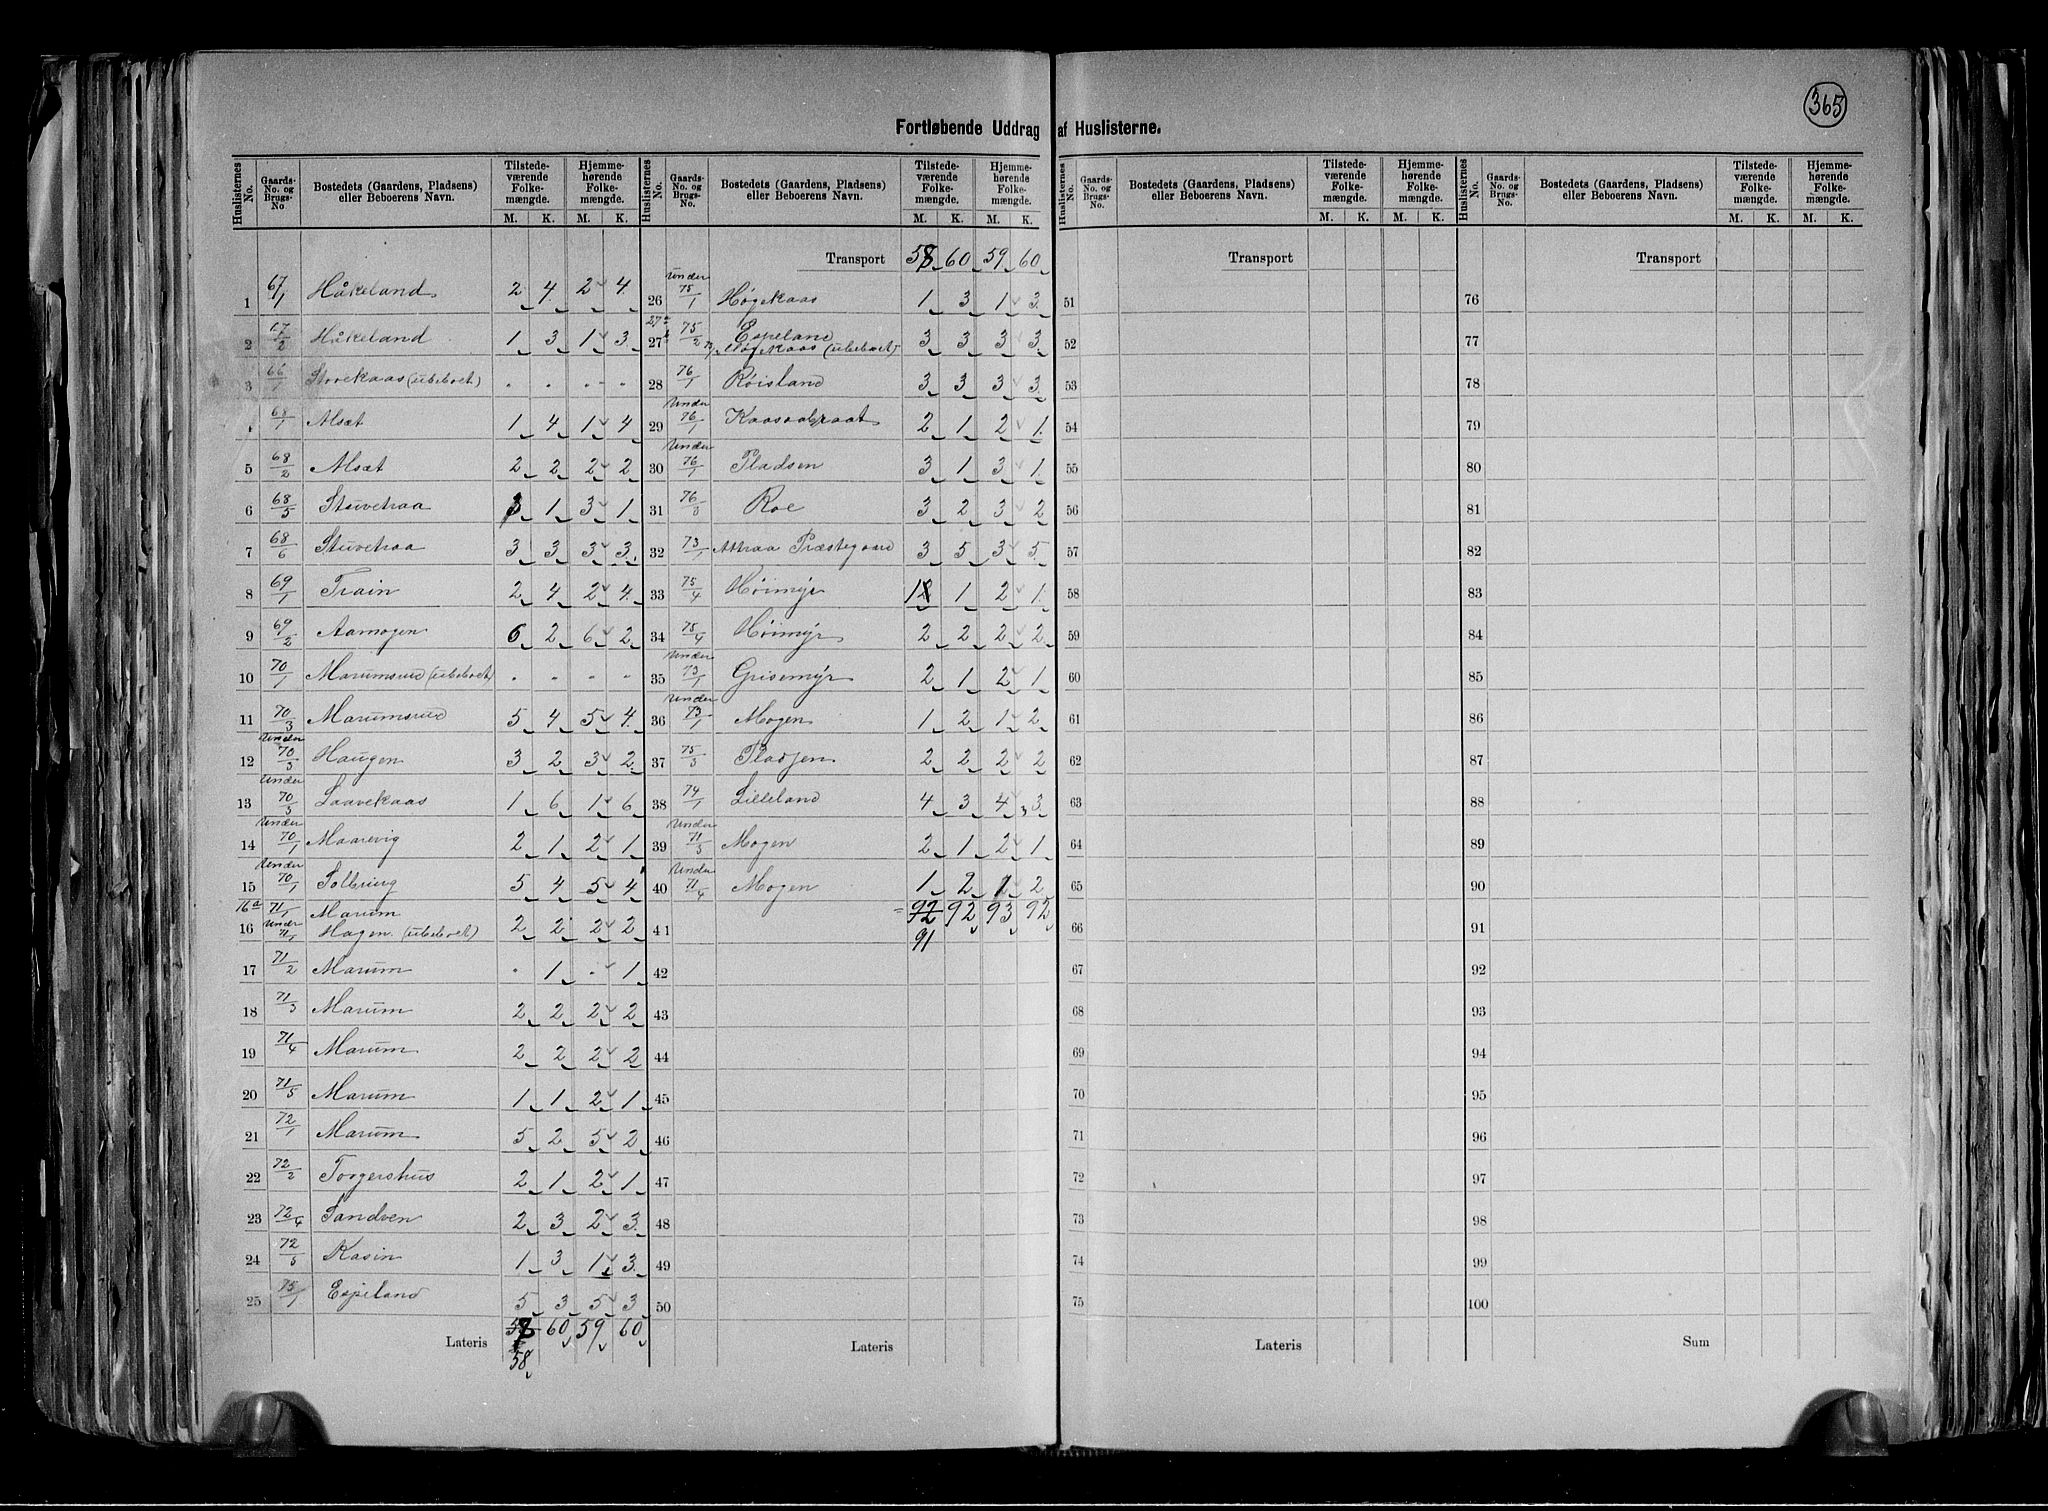 365
Fortløbende Uddrag af Huslisterne.
Huslisternes No. | Gaards-No. og Brugs-No. | Bostedets (Gaardens, Pladsens) eller Beboerens Navn. | Tilstedeværende Folkemængde. M. K. | Hjemmehørende Folkemængde. M. K.
1 67/1 Håkeland 2 4 2 4
2 67/2 Håkeland 1 3 1 3
3 66/1 Storekaas (ubeboet) . . . .
68/1 Alsæt 1 4 1 4
5 68/2 Alsæt 2 2 2 2
6 68/5 Stuvetraa 3 1 3 1
7 68/6 Stuvetraa 3 3 3 3
8 69/1 Train 2 4 2 4
9 69/2 Aamogen 6 2 6 2
10 70/1 Marumsrud (ubeboet) . . . .
11 70/3 Marumsrud 5 4 5 4
12 Under 70/3 Haugen 3 2 3 2
13 Under 70/3 Laavekaas 1 6 1 6
14 Under 70/1 Maarevig 2 1 2 1
15 Under 70/1 Solbring 5 4 5 4
16a 71/1 Marum
16 Under 71/1 Hagen (ubeboet) 2 2 2 2
17 71/2 Marum . 1 . 1
18 71/3 Marum 2 2 2 2
19 71/4 Marum 2 2 2 2
20 71/5 Marum 1 1 2 1
21 72/1 Marum 5 2 5 2
22 72/2 Torgershus 2 1 2 1
23 72/4 Sandven 2 3 2 3
24 72/5 Kasin 1 3 1 3
25 75/1 Espeland 5 3 5 3
Lateris 60 59 60
58
Huslisternes No. | Gaards-No. og Brugs-No. | Bostedets (Gaardens, Pladsens) eller Beboerens Navn. | Tilstedeværende Folkemængde. M. K. | Hjemmehørende Folkemængde. M. K.
Transport 58 60 59 60
26 Under 75/1 Høgekaas 1 3 1 3
27a 75/2 Espeland
27 Høgekaas (ubeboet) 3 3 3 3
28 76/1 Røisland 3 3 3 3
29 Under 76/1 Kaasaabraat 2 1 2 1
30 Under 76/1 Pladsen 3 1 3 1
31 76/3 Roe 3 2 3 2
32 73/1 Attraa Præstegaard 3 5 3 5
33 75/4 Høimyr 1 1 2 1
34 75/4 Høimyr 2 2 2 2
35 Under 73/1 Grisemyr 2 1 2 1
36 Under 73/1 Mogen 1 2 1 2
37 75/3 Pladsen 2 2 2 2
38 74/1 Lilleland 4 3 4 3
39 Under 71/5 Mogen 2 1 2 1
40 Under 71/4 Mogen 1 2 1 2
92 92 93 92
41 91
42
43
44
45
46
47
48
49
50
Lateris
Huslisternes No. | Gaards-No. og Brugs-No. | Bostedets (Gaardens, Pladsens) eller Beboerens Navn. | Tilstedeværende Folkemængde. M. K. | Hjemmehørende Folkemængde. M. K.
Transport
51
52
53
54
55
56
57
58
59
60
61
62
63
64
65
66
67
68
69
70
71
72
73
74
75
Lateris
Huslisternes No. | Gaards-No. og Brugs-No. | Bostedets (Gaardens, Pladsens) eller Beboerens Navn. | Tilstedeværende Folkemængde. M. K. | Hjemmehørende Folkemængde. M. K.
Transport
76
77
78
79
80
81
82
83
84
85
86
87
88
89
90
91
92
93
94
95
96
97
98
99
100
Sum